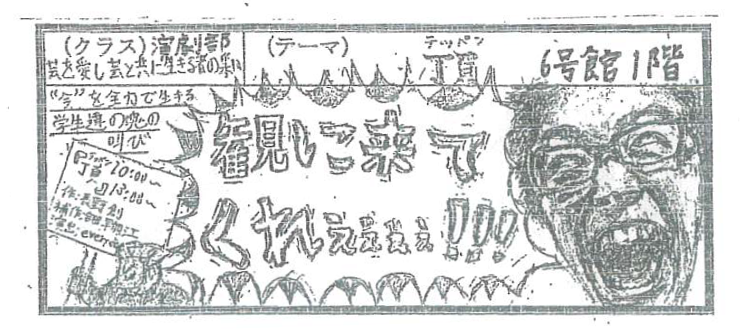 (クラス) 演劇部
芸を愛し芸と共に生きる者の集い
(テーマ) テッペン
頂
6号館1階
"今"を全力で生きる
学生達の魂の
叫び
観に来て
くれぇぇぇぇ!!!
テッペン
頂
10:00~
13:00~